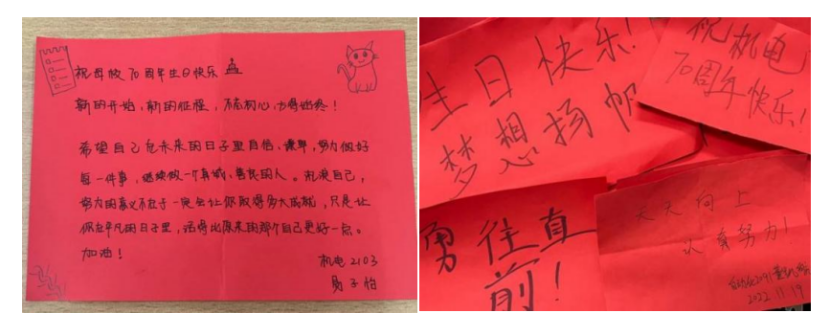 祝母校70周年生日快乐
新的开始，新的征程，不忘初心，方得始终！
希望自己在未来的日子里自信、谦卑，努力做好
每一件事，继续做一个真诚、善良的人。礼浪自己，
努力的意义不在于一定会让你取得多大成就，只是让
你在平凡的日子里，活得比原来的那个自己更好一点。
加油！
机电2103
易子怡
生日快乐！
梦想扬帆
祝机电
70周年快乐！
勇往直
前！
天天向上
认真努力！
2022.11.19